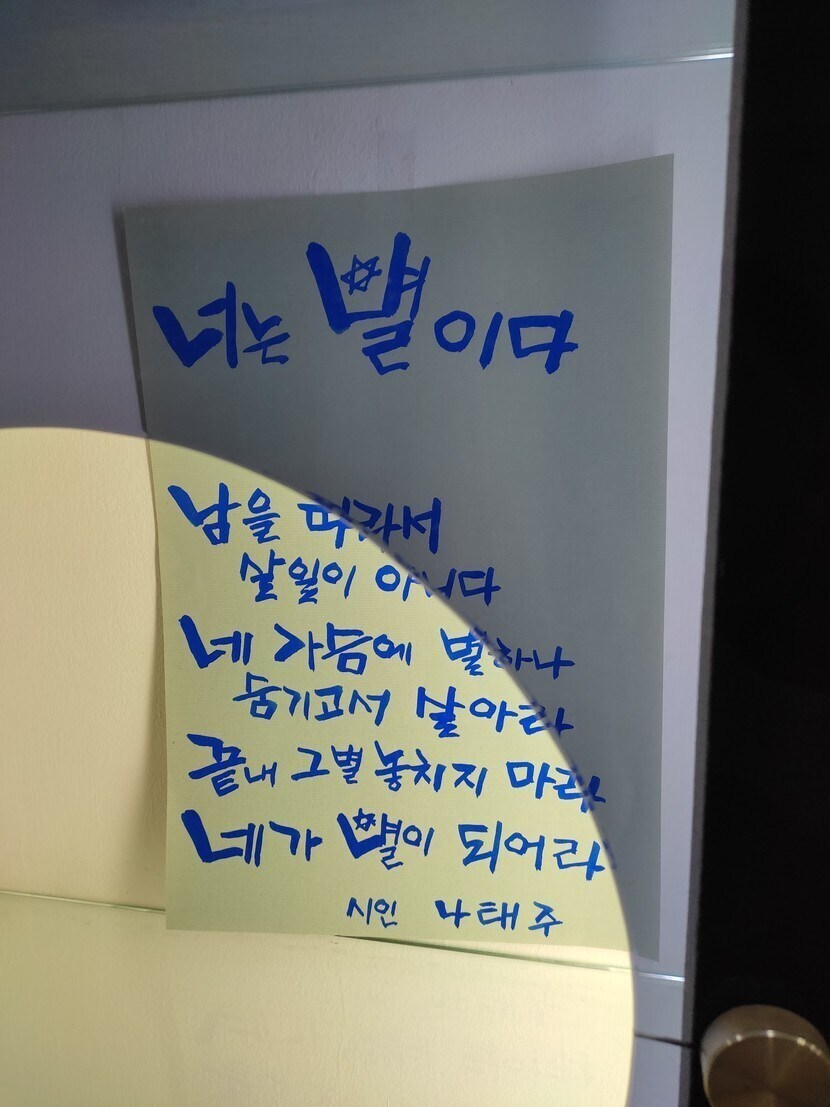 너는 별이다
남을 따라서
살일이 아니다
네 가슴에 별하나
숨기고서 살아라
끝내 그별 놓치지 마라
네가 별이 되어라
시인 나태주